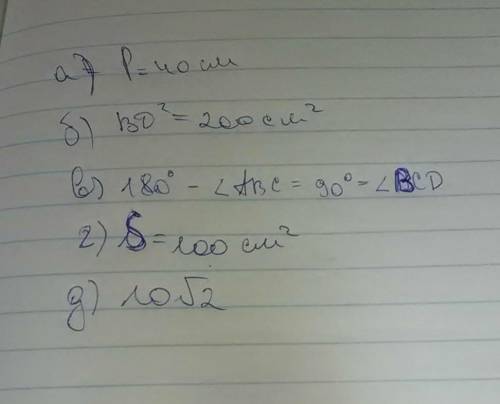 а) P=40см
б) BD²=200см²
в) 180° - ∠ABC = 90° = ∠BCD
г) S=100 см²
д) 10√2